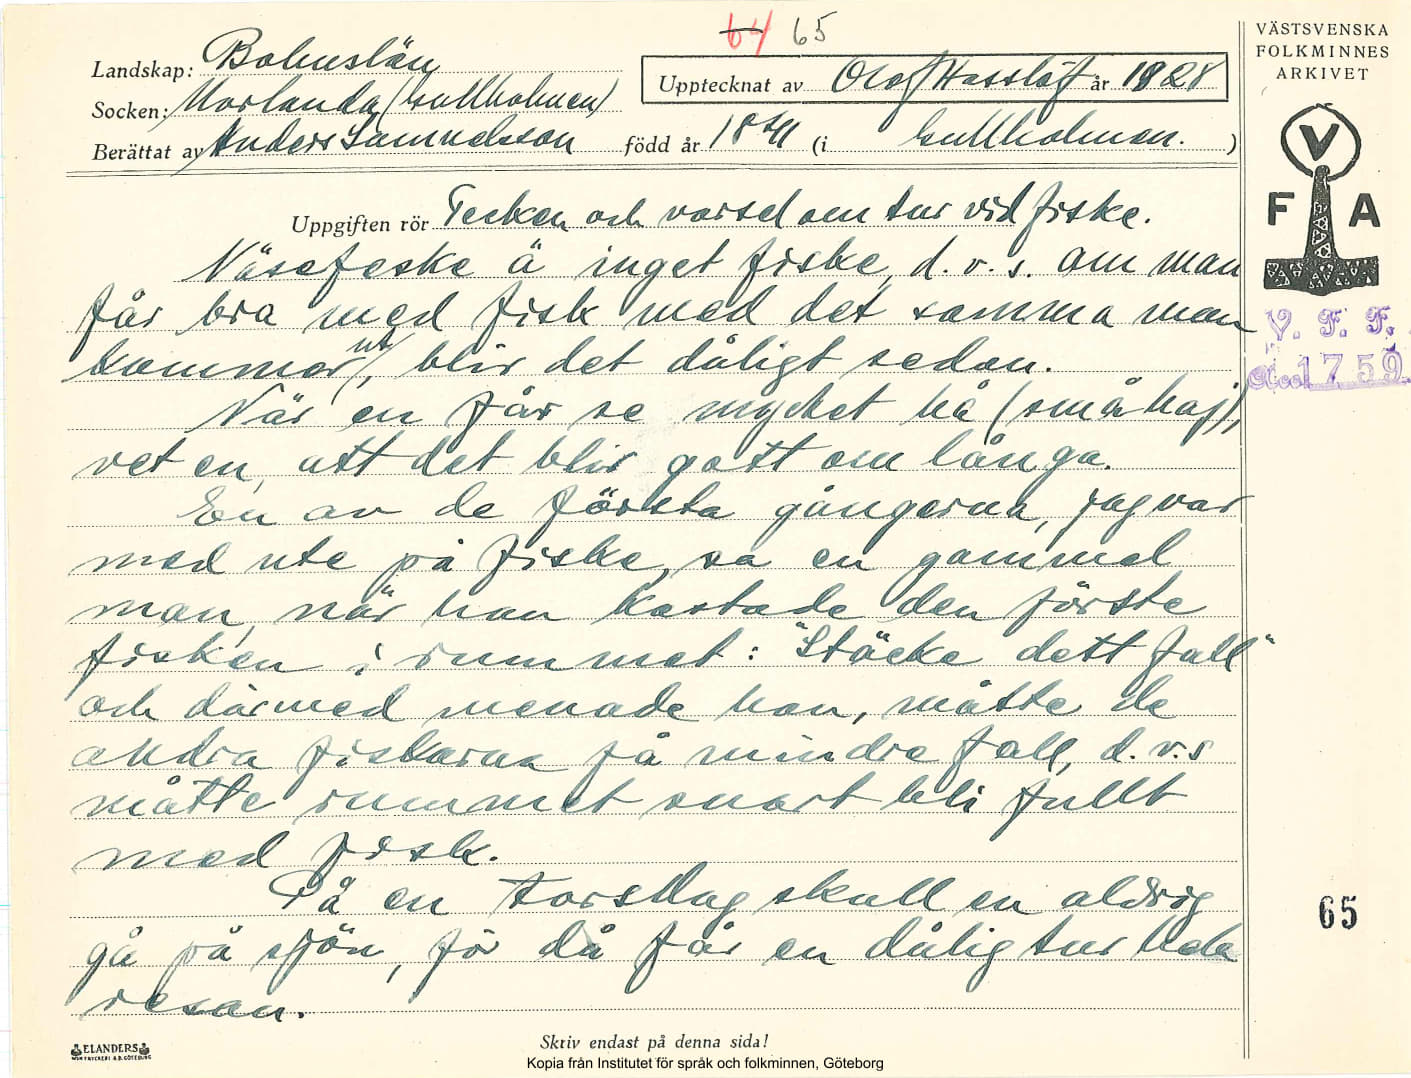 64 65
VÄSTSVENSKA
FOLKMINNES
ARKIVET
Landskap: Bohuslän
Upptecknat av Olof Hasslöf år 1928
Socken: Morlanda (Gullholmen)
Berättat av Anders Samuelsson född år 1841 (i Gullholmen. )
V
F A
Uppgiften rör Tecken och varsel om tur vid fiske.
Näsefeske ä inget fiske, d.v.s. om man
får bra med fisk med det samma man
kommer ut, blir det dåligt sedan.
V. F. F.
Acc. 1759
När en får se mycket hå (småhaj),
vet en, att det blir gott om långa.
En av de första gångerna, jag var
med ute på fiske, sa en gammal
man, när han kastade den förste
fisken i rummet: "Stäcke dett fall"
och därmed menade han, måtte de
andra fiskarna få mindre fall, d.v.s
måtte rummet snart bli fullt
med fisk.
På en torsdag skall en aldrig
65
gå på sjön, för då får en dålig tur hela
resan.
ELANDERS
Skriv endast på denna sida!
Kopia från Institutet för språk och folkminnen, Göteborg